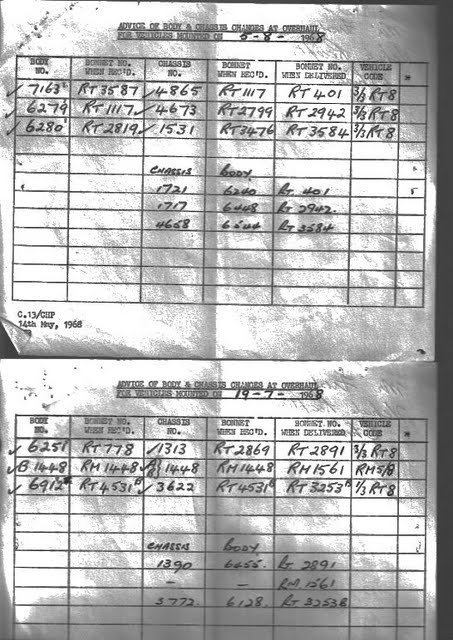 ADVICE OF BODY & CHASSIS CHANGES AT OVERHAUL
FOR VEHICLES MOUNTED ON 5-8- 1968
BODY NO. BONNET NO. WHEN REC'D. CHASSIS NO. BONNET WHEN REC'D. BONNET NO. WHEN DELIVERED VEHICLE CODE *
✓ 7163 RT3587 ✓ 4865 RT1117 RT401 3/3 RT8
✓ 6279 RT1117 ✓ 4673 RT2799 RT2942 3/3 RT8
✓ 6280 RT2819 ✓ 1531 RT3476 RT3584 3/3 RT8
CHASSIS BODY
1721 6240 RT 401
1717 6448 RT 2942.
4658 6544 RT 3584
C.13/CHP
14th May, 1968
ADVICE OF BODY & CHASSIS CHANGES AT OVERHAUL
FOR VEHICLES MOUNTED ON 19-7- 1968
BODY NO. BONNET NO. WHEN REC'D. CHASSIS NO. BONNET WHEN REC'D. BONNET NO. WHEN DELIVERED VEHICLE CODE *
✓ 6251 RT778 ✓ 1313 RT2869 RT2891 3/3 RT8
✓ B1448 RM1448 ✓ 1448 RM1448 RM1561 RM5/8
✓ 6912 RT4531 ✓ 3622 RT4531 RT3253 1/3 RT8
CHASSIS BODY
1390 6455 RT 2891
— — RM 1561
3772. 6128. RT 3253B